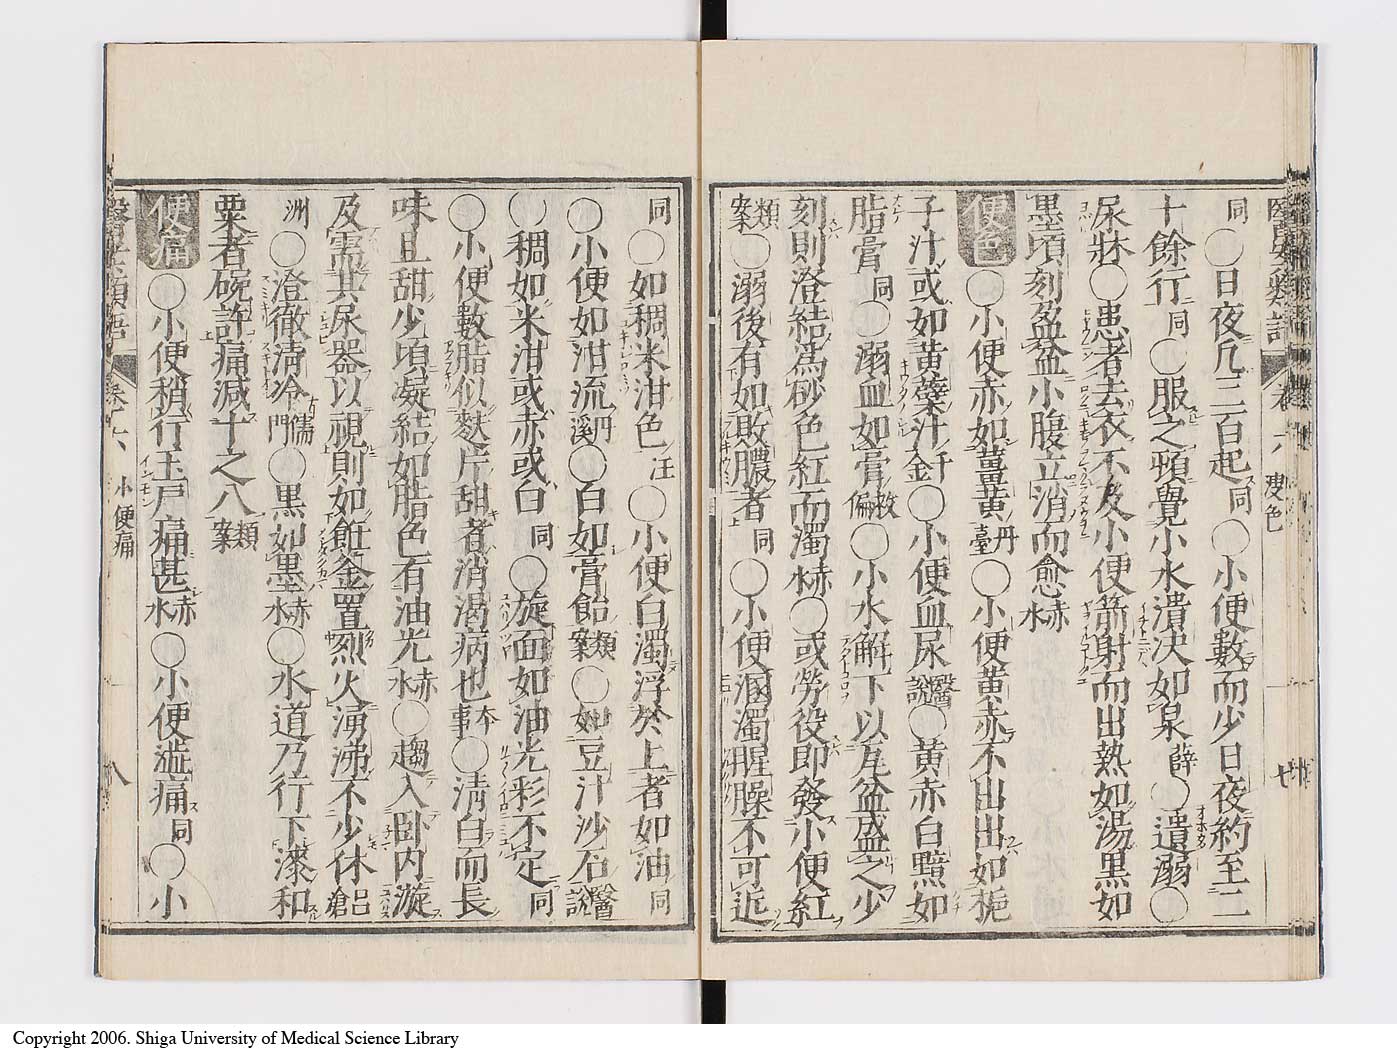 同○日夜凡三百起同○小便數而少日夜約至二
十餘行同○服之頓覺小水潰决如泉薛○遺溺○
尿牀○患者去衣不及小便箭射而出熱如湯黒如
墨頃刻盈盆小腹立消而愈赤水
便色○小便赤如薑黄丹臺○小便黄赤不出出如梔
子汁或如黄蘗汁千金○小便血尿醫説○黄赤白黯如
脂膏同○溺血如膏救偏○小水解下以瓦盆盛之少
刻則澄結爲砂色紅而濁赤水○或勞役即發小便紅
類案○溺後有如敗膿者同○小便溷濁腥臊不可近
同○如稠米泔色汪○小便白濁浮於上者如油同
○小便如泔流丹溪○白如膏飴類案○如豆汁沙石醫説
○稠如米泔或赤或白同○旋面如油光彩不定同
○小便數脂似麩片甜者消渇病也本事○清白而長
味且甜少頃凝結如脂色有油光赤水○趨入卧内漩
及需其尿器以視則如釭釜置烈火湧沸不少休呂滄
洲○澄徹清冷儒門○黒如墨赤水○水道乃行下滲和
粟者碗許痛減十之八類案
便痛○小便稍行玉戸痛甚赤水○小便澁痛同○小
小便痛
八
Copyright 2006. Shiga University of Medical Science Library